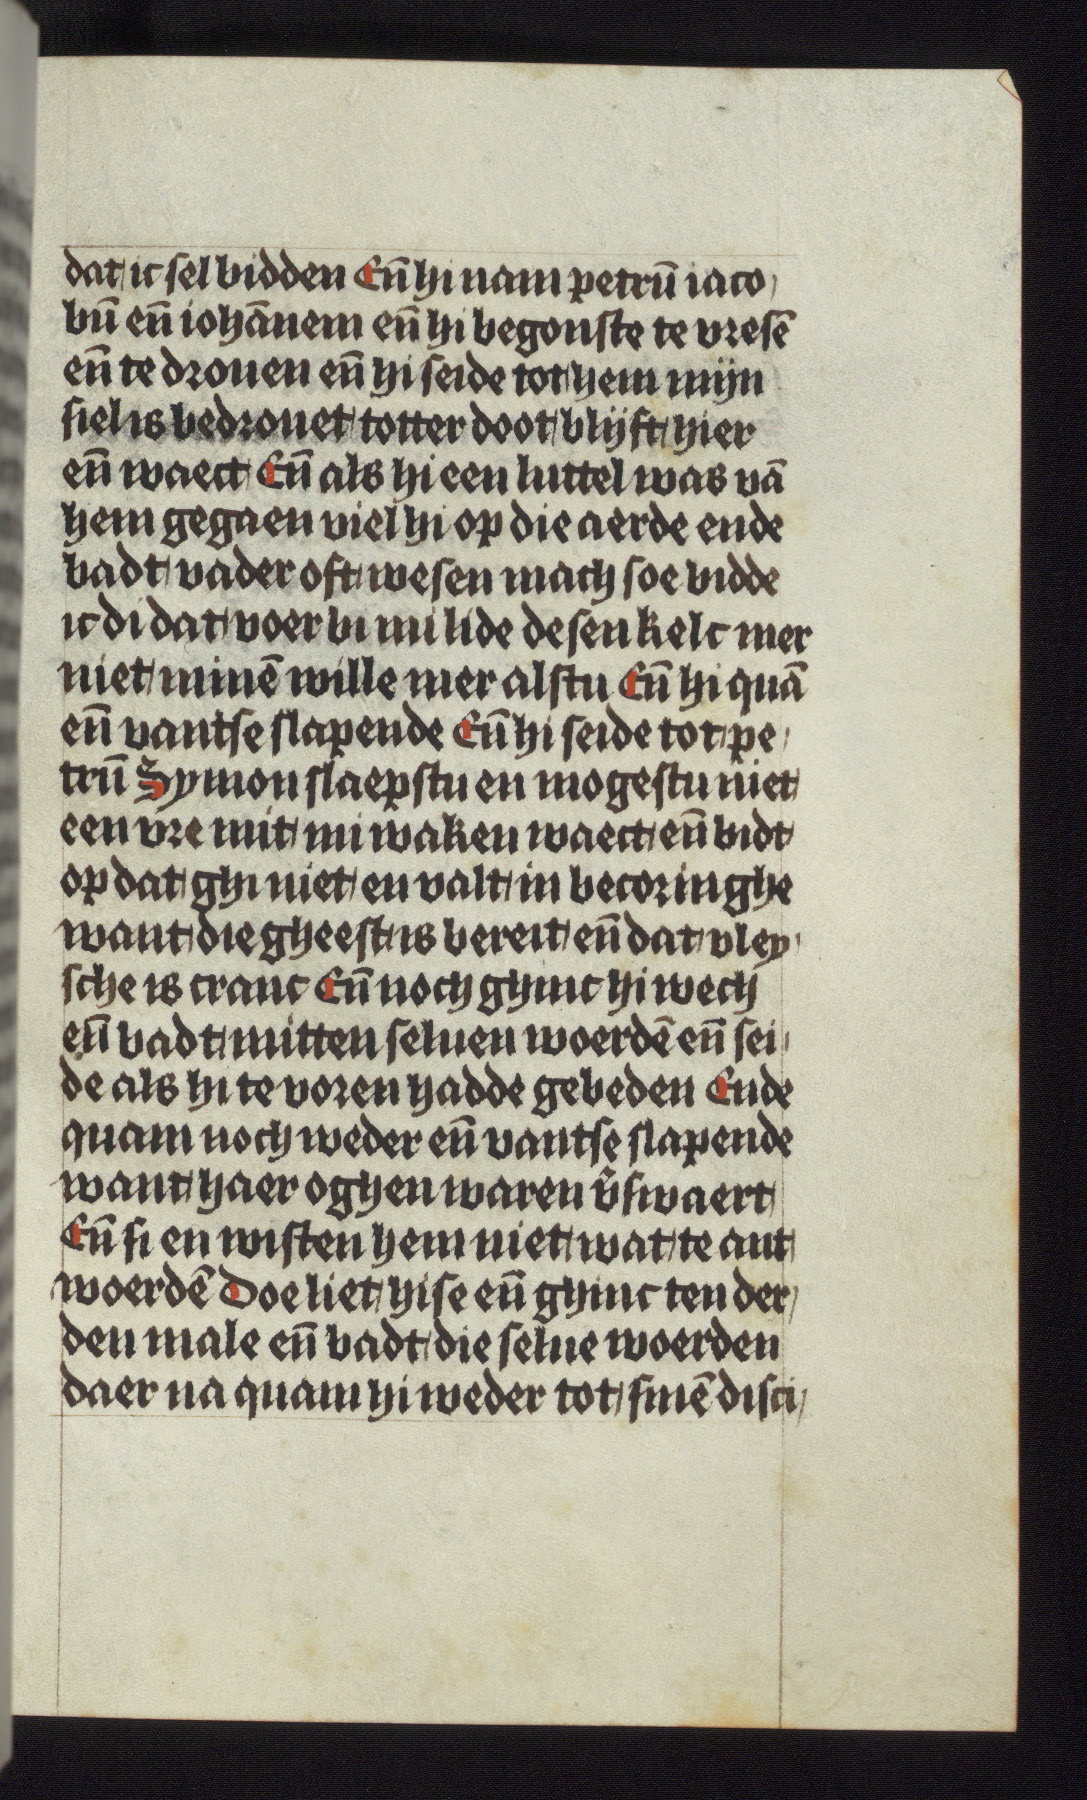 dat ic sel bidden En̄ hi nam petrū iaco
bū en̄ iohānem en̄ hi begonste te vresē
en̄ te drouen en̄ hi seide tot hem mijn
siel is bedrouet totter doot blijft hier
en̄ waect En̄ als hi een luttel was vā
hem gegaen viel hi op die aerde ende
badt vader oft wesen mach soe bidde
ic di dat voer bi mi lide desen kelc mer
niet minē wille mer alstu En̄ hi quā
en̄ vantse slapende En̄ hi seide tot pe
trū Symon slaepstu en mogestu niet
een vre mit mi waken waect en̄ bidt
op dat ghi niet en valt in becoringhe
want die gheest is bereit en̄ dat vley
sche is cranc En̄ noch ghinc hi wech
en̄ badt mitten seluen woerdē en̄ sei
de als hi te voren hadde gebeden Ende
quam noch weder en̄ vantse slapende
want haer oghen waren v̄swaert
En̄ si en wisten hem niet wat te ant
woerdē Doe liet hise en̄ ghinc ten der
den male en̄ badt die selue woerden
daer na quam hi weder tot sinē disci